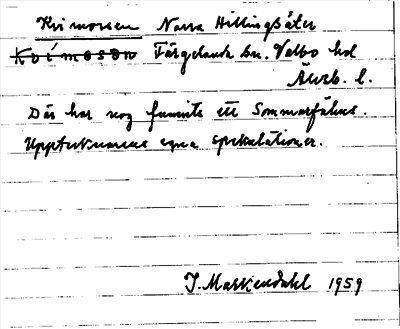 Kvimossen Norra Hillingsäter
Kvímosen Färgelanda sn. Valbo hd
Älvsb. l.
Där har nog funnits ett Sommarfähus.
Upptecknarens egna spekulationer.
J. Markendahl 1959